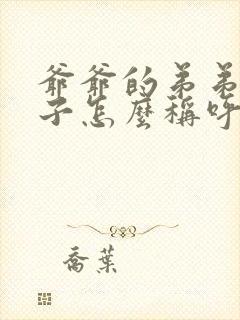 爺爺的弟弟
子怎麼稱呼
喬葉